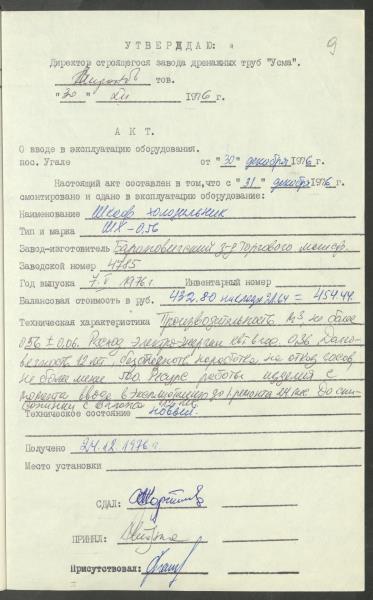 9
УТВЕРЖДАЮ:
Директор строящегося завода дренажных труб "Усма".
тов.
"30" XII 1976 г.
АКТ.
О вводе в эксплуатацию оборудования.
пос. Угале от "30" декабря 1976 г.
Настоящий акт составлен в том, что с "31" декабря 1976 г.
смонтировано и сдано в эксплуатацию оборудование:
Наименование Шкаф холодильник
Тип и марка ШХ-0,56
Завод-изготовитель Барановичский з-д торгового машстр.
Заводской номер 4715
Год выпуска 7.V 1976 г. Инвентарный номер
Балансовая стоимость в руб. 432.80 21.64 = 454.44
Техническая характеристика Производительность м3 не более
0,56 ± 0,06. Расход электроэнергии квт в час. 0,36. Долго-
вечность 12 лет, безотказность наработка на отказ часов
не менее Ресурс работы изделия с
момента ввода в эксплуатацию до ремонта До спи-
Техническое состояние новый.
Получено 24.12.1976 г.
Место установки
СДАЛ:
ПРИНЯЛ:
Присутствовал: